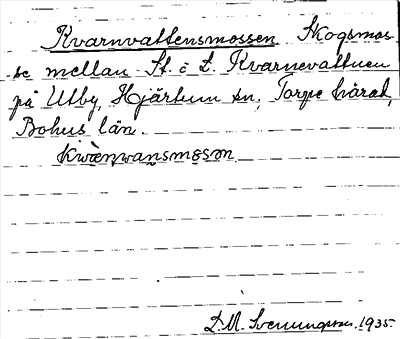 Kvarnvattensmossen Skogsmos
se mellan St. o L. Kvarnevattnen
på Utby, Hjärtum sn, Torpe härad,
Bohus län.
kwæɳwansmɔsən
D.M. Svenungsson. 1935.